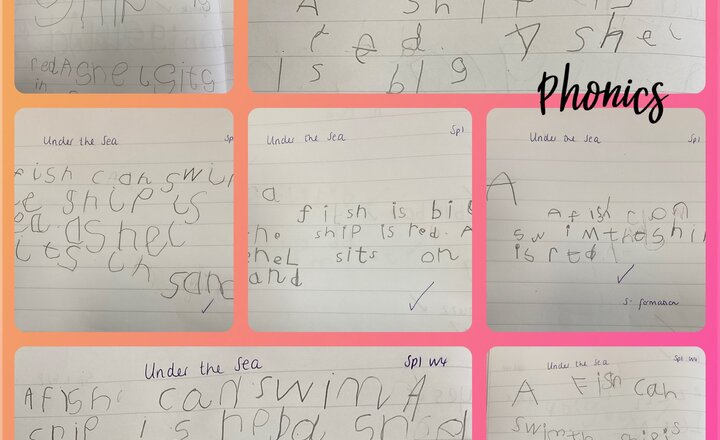 ship is
red A shel sits
in
A ship is
red. A shel
is big
Phonics
Under the Sea
Sp
fish can swim
e ship is
ed. a shel
its in
sand
Under the Sea
Sp1
a
fish is big
he ship is red. A
shel sits on
sand
Under the Sea
Sp1
A
A fish can
swim the ship
is red
s- formation
Under the Sea Sp1 W4
A fish can swim A
ship is
Under the Sea Sp1 W4
A Fish can
swim